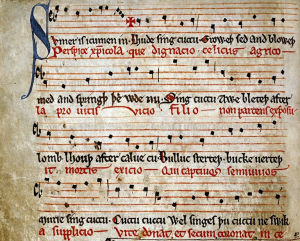 Svmer is icumen in· Lhude sing cuccu· Groweþ sed and bloweþ
Perspice xp̅icola que dignacio celicus agrico
med and springþ þe wde nu· Sing cuccu Awe bleteþ after
la pro uitis vicio filio non parcens exposu
lomb lhouþ after calue cu· Bulluc sterteþ· bucke uerteþ
it mortis exicio Qui captiuos semiuiuos
murie sing cuccu· Cuccu cuccu Wel singes þu cuccu ne swik
a supplicio Vite donat et secum coronat in ce